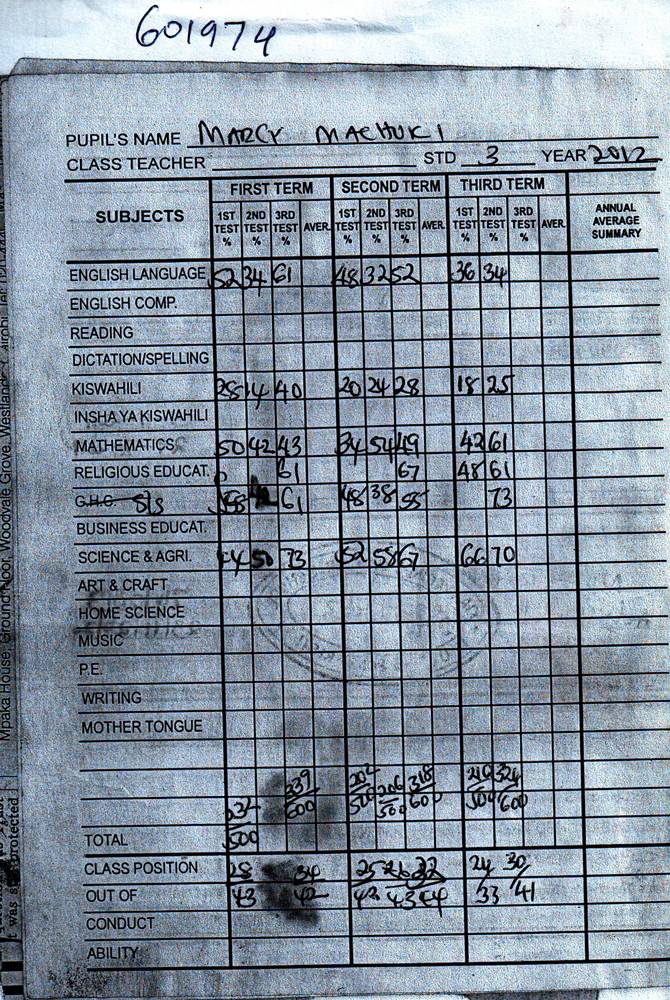 601974
PUPIL'S NAME MARCY MACHUKI
CLASS TEACHER STD 3 YEAR 2012
SUBJECTS FIRST TERM SECOND TERM THIRD TERM ANNUAL AVERAGE SUMMARY
1ST TEST % 2ND TEST % 3RD TEST % AVER. 1ST TEST % 2ND TEST % 3RD TEST % AVER. 1ST TEST % 2ND TEST % 3RD TEST % AVER.
ENGLISH LANGUAGE 52 34 61 48 32 52 36 34
ENGLISH COMP.
READING
DICTATION/SPELLING
KISWAHILI 28 14 40 20 24 28 18 25
INSHA YA KISWAHILI
MATHEMATICS 50 42 43 34 54 49 42 61
RELIGIOUS EDUCAT. 61 67 48 61
G.H.C. S/s 61 48 38 55 73
BUSINESS EDUCAT.
SCIENCE & AGRI. 44 50 73 52 58 67 66 70
ART & CRAFT
HOME SCIENCE
MUSIC
P.E.
WRITING
MOTHER TONGUE
339 202 206 318 210 324
600 500 500 600 500 600
TOTAL 500
CLASS POSITION 28 34 25 26 32 24 30
OUT OF 43 42 43 43 44 33 41
CONDUCT
ABILITY
Mpaka House, Ground Floor, Woodvale Grove, Westlands